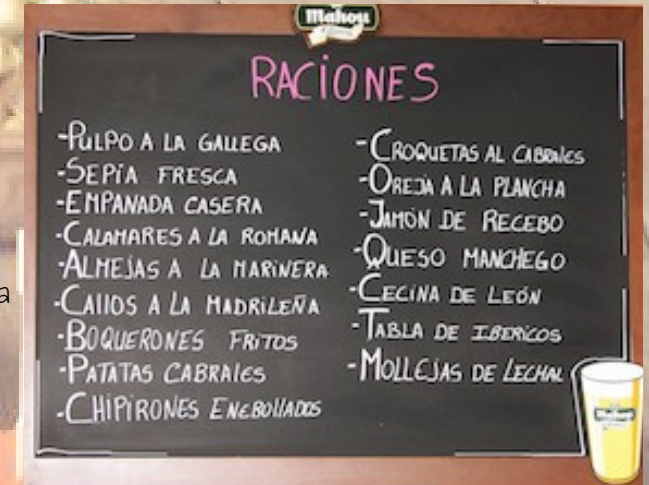 Mahou
RACIONES
-PULPO A LA GALLEGA
-SEPIA FRESCA
-EMPANADA CASERA
-CALAMARES A LA ROMANA
-ALMEJAS A LA MARINERA
-CALLOS A LA MADRILEÑA
-BOQUERONES FRITOS
-PATATAS CABRALES
-CHIPIRONES ENCBOLLADOS
-CROQUETAS AL CABRALES
-OREJA A LA PLANCHA
-JAMÓN DE RECEBO
-QUESO MANCHEGO
-CECINA DE LEÓN
-TABLA DE IBERICOS
-MOLLEJAS DE LECHAL
Mahou
a